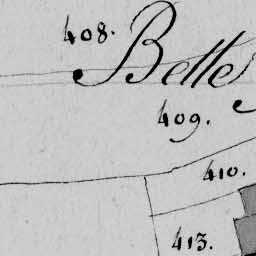 408.
Belle
409.
410.
413.